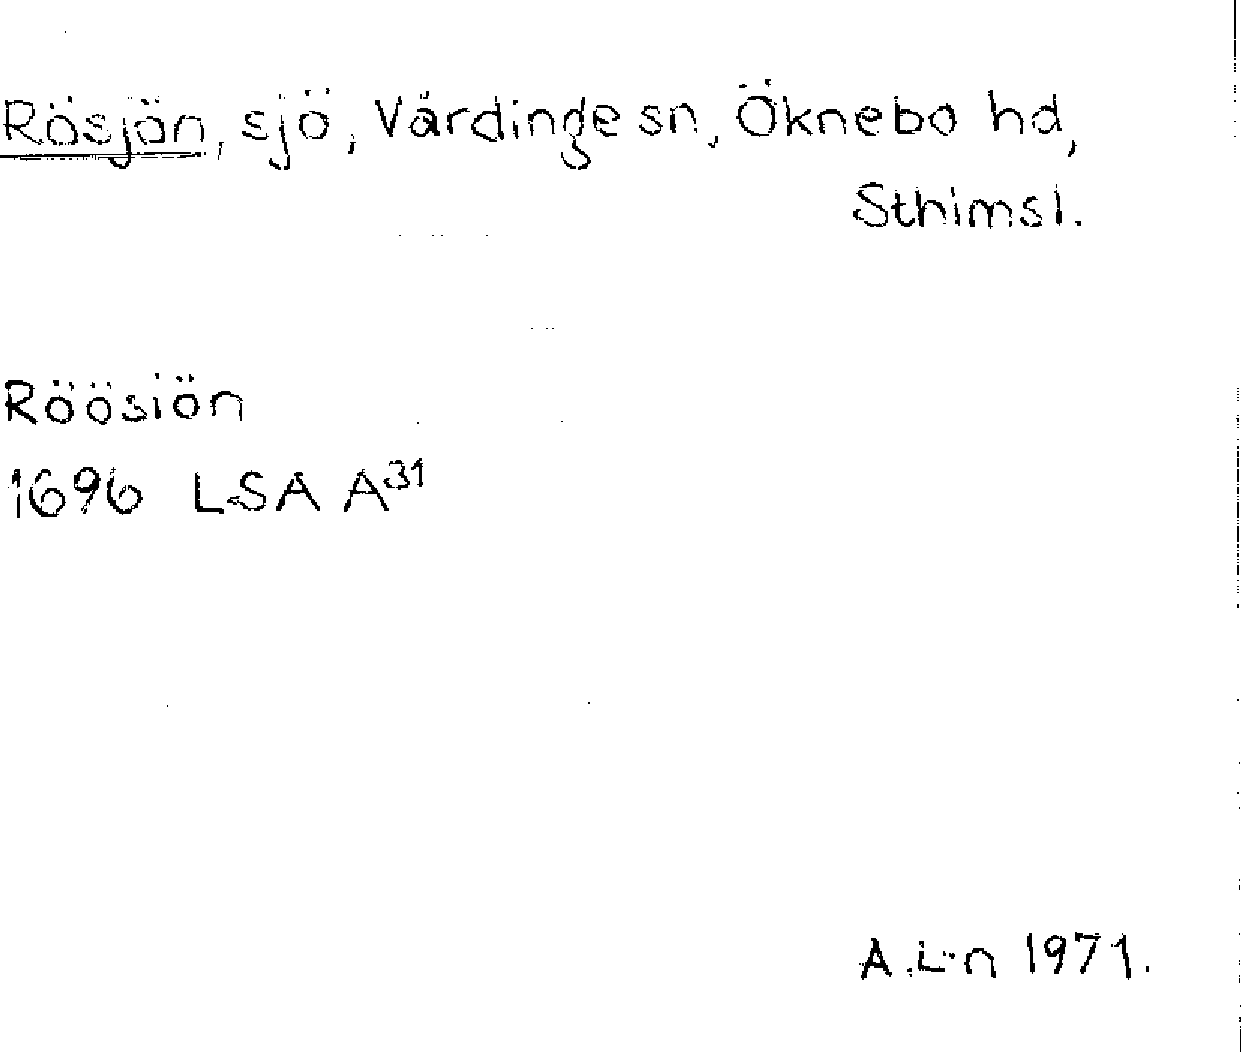 Rösjön, sjö, Vårdinge sn, Öknebo hd,
Sthlmsl.
Röösiön
1696 LSA A³¹
A.L-n 1971.